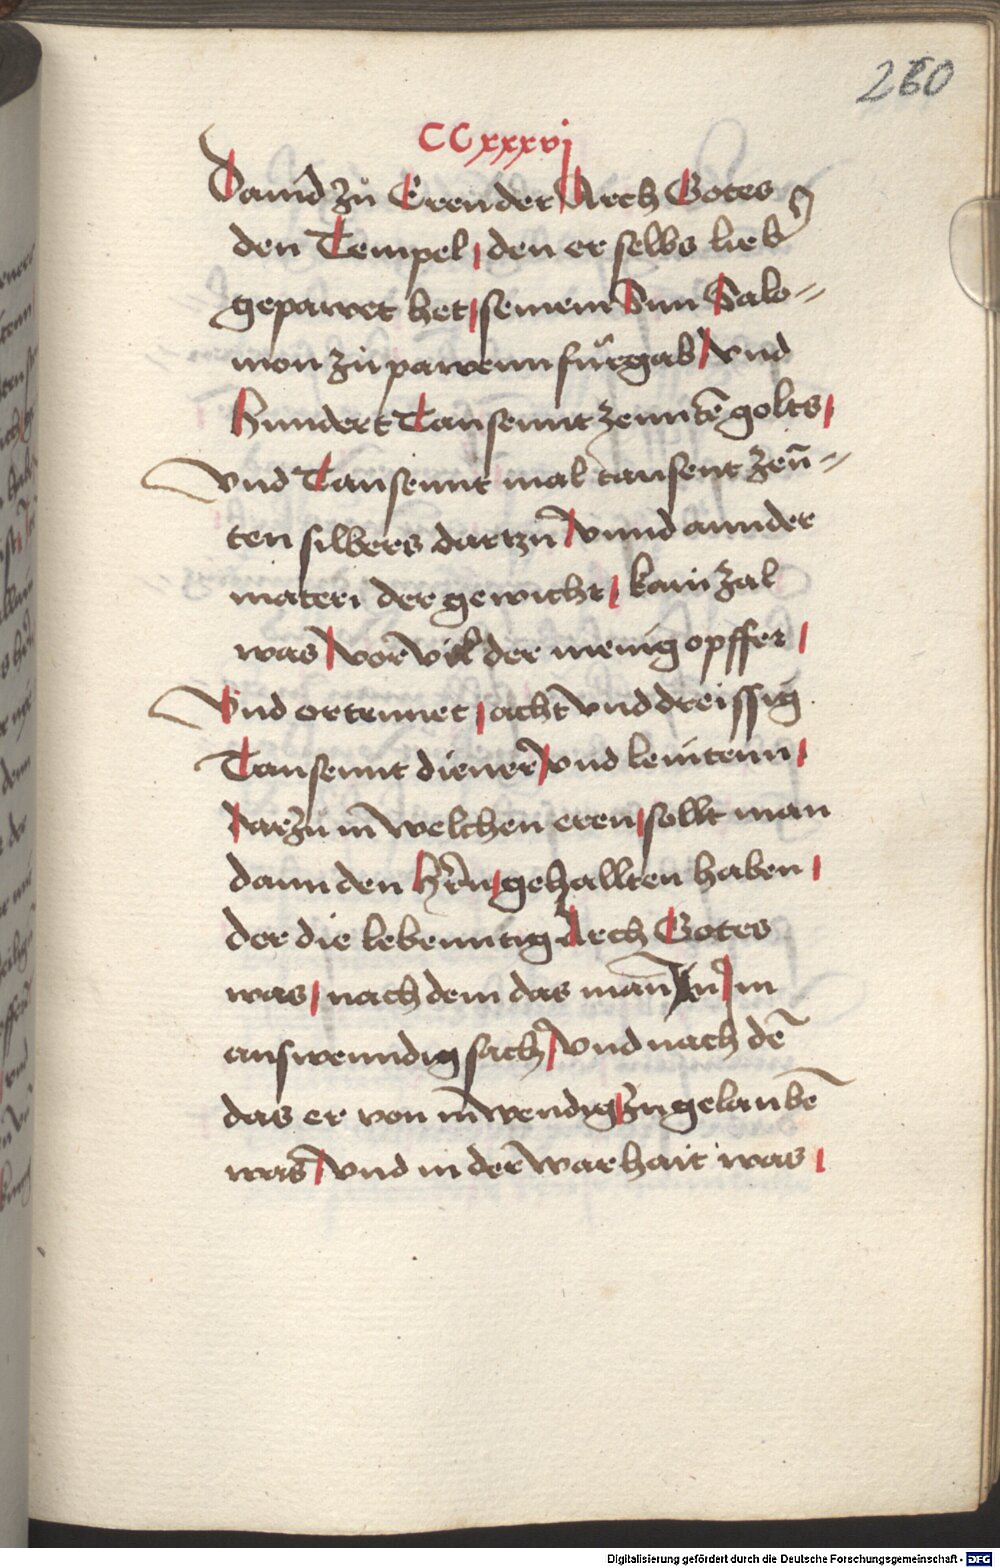 260
CCxxxvj
Dauid zů Eren der Arch Gotes
den Tempel, den er selbs lieb̾
gepawet het, seinem Sun Salo=
mon zů pawenn fürgab, vnd
Hundert Tausennt zenntē golts,
vnd Tausennt mal tausent zen̄=
ten silbers dartzu, vnnd annder
materi der gewicht, kain zal
was, vor vil der menig opffer,
Vnd ortennet, acht vnd dreissig
Tausennt diener, vnd leuitenn,
darzů in welchen eren, sollt man
dann den hr̄n, gehallten haben,
der die lebenntig Arch Gotes
was, nach dem das man in, in
auswenndig sach, vnd nach dē
das er von inwendig, zu gelaubē
was, vnd in der warhait was,
Digitalisierung gefördert durch die Deutsche Forschungsgemeinschaft - DFG